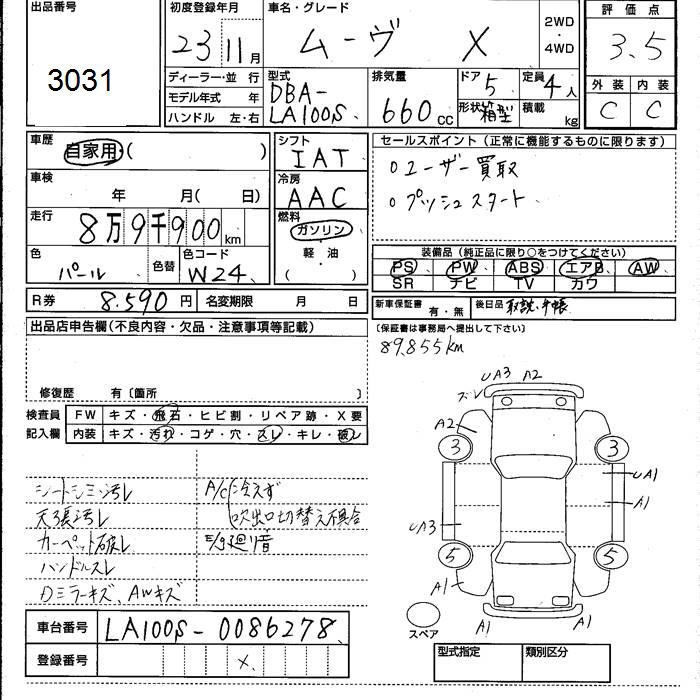 出品番号
3031
初度登録年月
23 11月
車名・グレード
ムーヴ X
2WD
・
4WD
評価点
3.5
外装 内装
C C
ディーラー・並 行
モデル年式 年
ハンドル 左・右
型式
DBA-
LA100S
排気量
660 cc
ドア 5
形状 箱型
定員 4人
積載 kg
車歴 自家用・( )
車検 年 月( 日)
走行 8万9千900km
色 パール 色替 色コード W24
シフト
IAT
冷房
AAC
燃料
ガソリン
・
軽・油
( )
セールスポイント(正常に機能するものに限ります)
○ユーザー買取
○プッシュスタート
装備品(純正品に限り○をつけてください)
PS PW ABS エアB AW
SR ナビ TV カワ
R券 8.590円 名変期限 月 日
新車保証書 有・無 後日品 取説、手帳
〔保証書は事務局へ提出して下さい〕
89,855km
出品店申告欄(不良内容・欠品・注意事項等記載)
修復歴 有〔箇所 〕
検査員 FW キズ・飛石・ヒビ割・リペア跡・X要
記入欄 内装 キズ・汚れ・コゲ・穴・スレ・キレ・破レ
シートシミ・汚レ
天張汚レ
カーペット破レ
ハンドルスレ
Dミラーキズ、AWキズ
A/C冷えず
吹出口切替え不具合
E/g廻り音
UA3 A2
ズレ
A2
3 3
UA1
A1
UA3
5 5
A1
A1 A1
スペア
車台番号 LA100S-0086278
登録番号 X
型式指定 類別区分